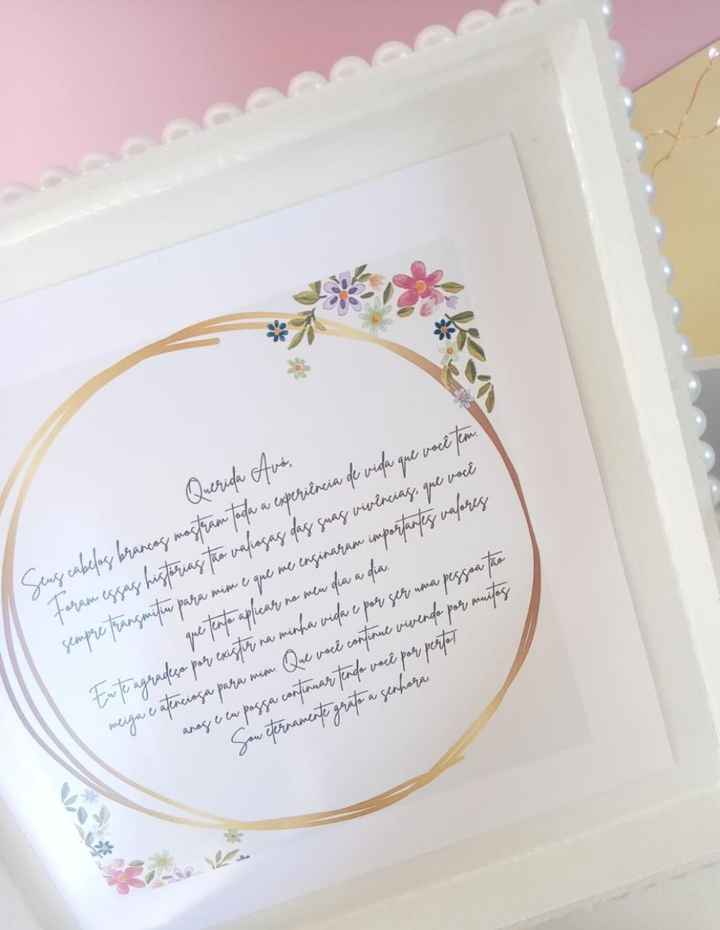 Querida Avó,
Seus cabelos brancos mostram toda a experiência de vida que você tem.
Foram essas histórias tão valiosas das suas vivências, que você
sempre transmitiu para mim e que me ensinaram importantes valores
que tento aplicar no meu dia a dia.
Eu te agradeço por existir na minha vida e por ser uma pessoa tão
meiga e atenciosa para mim. Que você continue vivendo por muitos
anos e eu possa continuar tendo você por perto!
Sou eternamente grato a senhora.